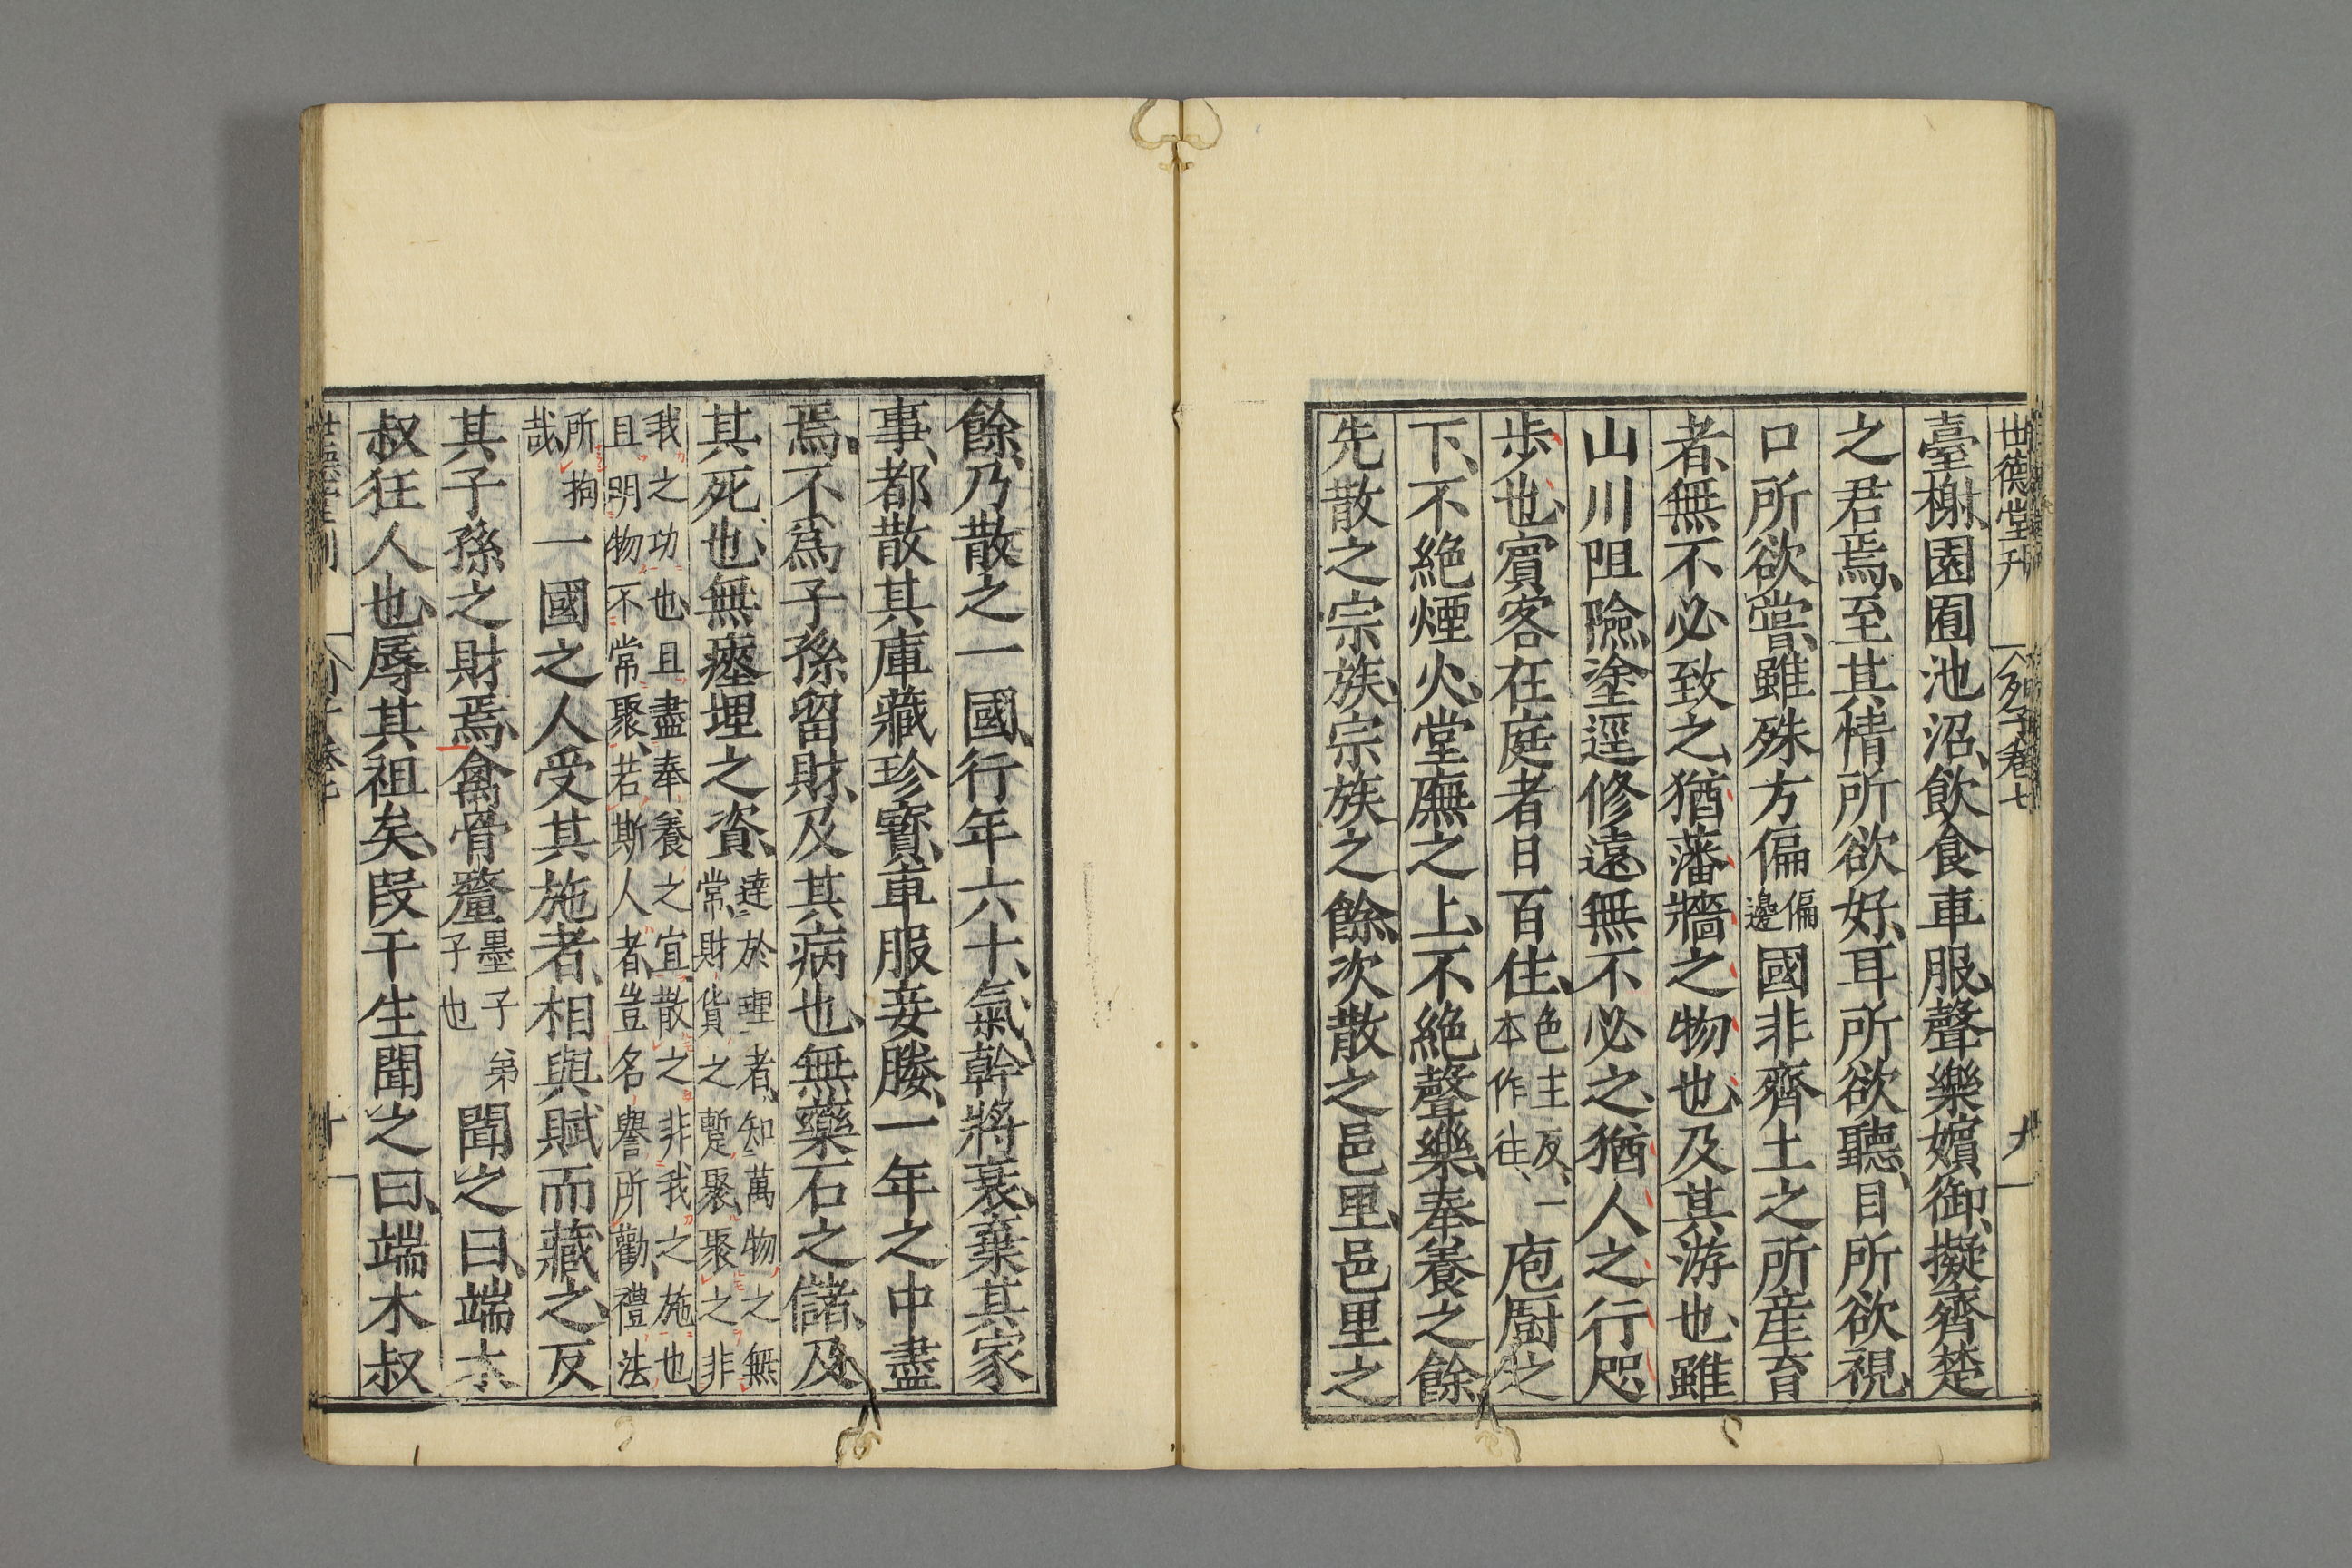 世德堂刊 列子卷七 九
臺榭、園囿池沼、飲食車服、聲樂嬪御、擬齊楚
之君焉、至其情所欲好、耳所欲聽、目所欲視、
口所欲嘗、雖殊方偏偏邊國非齊土之所産育
者、無不必致之、猶藩牆之物也、及其游也、雖
山川阻險、塗逕修遠、無不必之、猶人之行咫
步也、賓客在庭者日百住、色主反、一本作往、庖厨之
下、不絶煙火、堂廡之上、不絶聲樂、奉養之餘、
先散之宗族、宗族之餘、次散之邑里、邑里之
餘、乃散之一國、行年六十、氣幹將衰、棄其家
事、都散其庫藏珍寳、車服妾媵、一年之中盡
焉、不爲子孫留財、及其病也、無藥石之儲、及
其死也、無瘞埋之資、達於理者、知萬物之無常、財貨之蹔聚、聚之非
我之功也、且盡奉養之宜、散之非我之施也、且明物不常聚、若斯人者、豈名譽所勸、禮法
所拘哉 一國之人受其施者、相與賦而藏之、反
其子孫之財焉、禽骨釐墨子弟子也 聞之曰、端木
叔狂人也、辱其祖矣、段干生聞之曰、端木叔